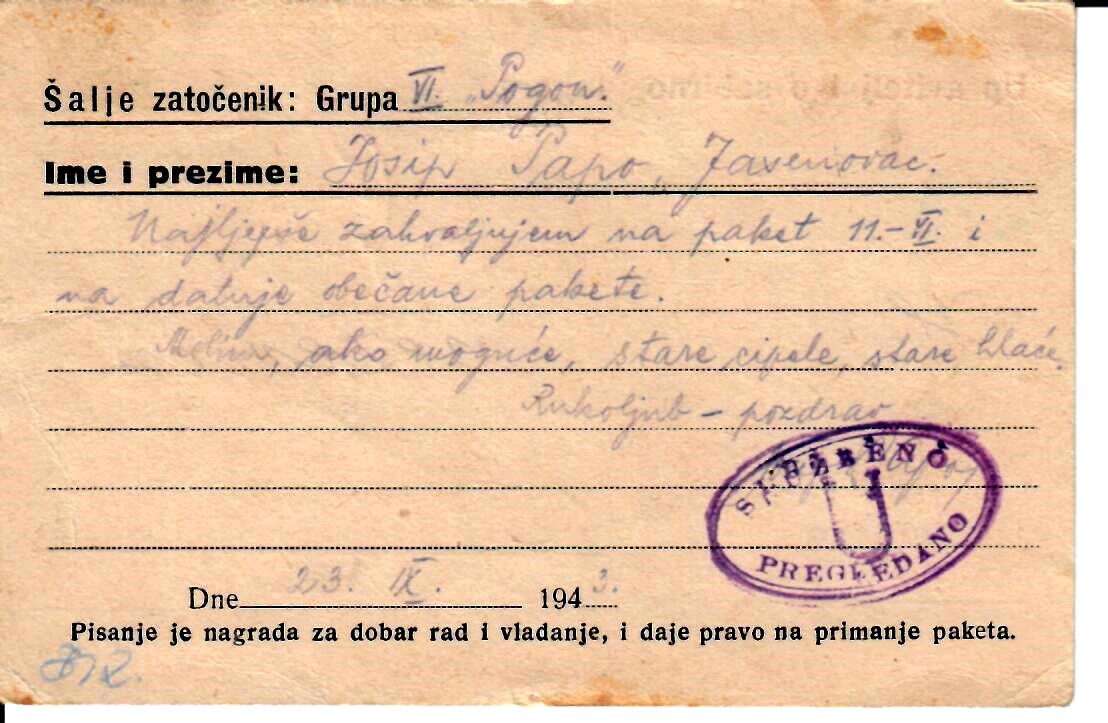 Šalje zatočenik: Grupa VI. "Pogon."
Ime i prezime: Josip Papo, Jasenovac.
Najljepše zahvaljujem na paket 11.-VI. i
na daluje obečane pakete.
Molim, ako moguće, stare cipele, stare hlače.
Rukoljub - pozdrav
SLUŽBENO
U
PREGLEDANO
Dne 23. IX. 1943.
Pisanje je nagrada za dobar rad i vladanje, i daje pravo na primanje paketa.